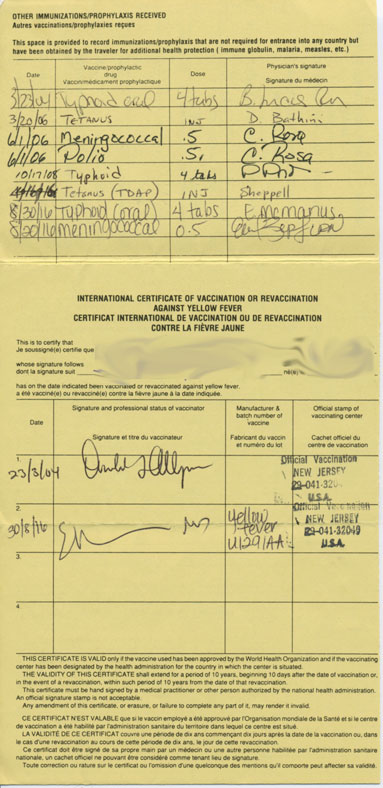 OTHER IMMUNIZATIONS/PROPHYLAXIS RECEIVED
Autres vaccinations/prophylaxies reçues
This space is provided to record immunizations/prophylaxis that are not required for entrance into any country but
have been obtained by the traveler for additional health protection ( immune globulin, malaria, measles, etc.)
Date Vaccine/prophylactic drug Vaccin/médicament prophylactique Dose Physician's signature Signature du médecin
3/23/04 Typhoid oral 4 tabs B.
3/20/06 TETANUS INJ D. Bathini
6/1/06 Meningococcal .5 C. Rosa
6/1/06 Polio .5 C. Rosa
10/17/08 Typhoid 4 tabs
Tetanus (TDAP) INJ Sheppell
8/30/16 Typhoid (oral) 4 tabs E. McManus
8/30/16 meningococcal 0.5
INTERNATIONAL CERTIFICATE OF VACCINATION OR REVACCINATION
AGAINST YELLOW FEVER
CERTIFICAT INTERNATIONAL DE VACCINATION OU DE REVACCINATION
CONTRE LA FIÈVRE JAUNE
This is to certify that
Je soussigné(e) certifie que
whose signature follows
dont la signature suit né(e)
has on the date indicated been vaccinated or revaccinated against yellow fever.
a été vacciné(e) ou revacciné(e) contre la fièvre jaune à la date indiquée.
Date Signature and professional status of vaccinator Signature et titre du vaccinateur Manufacturer & batch number of vaccine Fabricant du vaccin et numéro du lot Official stamp of vaccinating center Cachet officiel du centre de vaccination
1.
23/3/04
Official Vaccination
NEW JERSEY
29-041-320
U.S.A.
2.
30/8/16
Yellow Fever
UI291AA
Official Vaccination
NEW JERSEY
29-041-32049
U.S.A.
3.
4.
THIS CERTIFICATE IS VALID only if the vaccine used has been approved by the World Health Organization and if the vaccinating
center has been designated by the health administration for the country in which the center is situated.
THE VALIDITY OF THIS CERTIFICATE shall extend for a period of 10 years, beginning 10 days after the date of vaccination or,
in the event of a revaccination, within such period of 10 years from the date of that revaccination.
This certificate must be hand signed by a medical practitioner or other person authorized by the national health administration.
An official signature stamp is not acceptable.
Any amendment of this certificate, or erasure, or failure to complete any part of it, may render it invalid.
CE CERTIFICAT N'EST VALABLE que si le vaccin employé a été approuvé par l'Organisation mondiale de la Santé et si le centre
de vaccination a été habilité par l'administration sanitaire du territoire dans lequel ce centre est situé.
LA VALIDITÉ DE CE CERTIFICAT couvre une période de dix ans commençant dix jours après la date de la vaccination ou, dans
le cas d'une revaccination au cours de cette période de dix ans, le jour de cette revaccination.
Ce certificat doit être signé de sa propre main par un médecin ou une autre personne habilitée par l'administration sanitaire
nationale, un cachet officiel ne pouvant être considéré comme tenant lieu de signature.
Toute correction ou rature sur le certificat ou l'omission d'une quelconque des mentions qu'il comporte peut affecter sa validité.